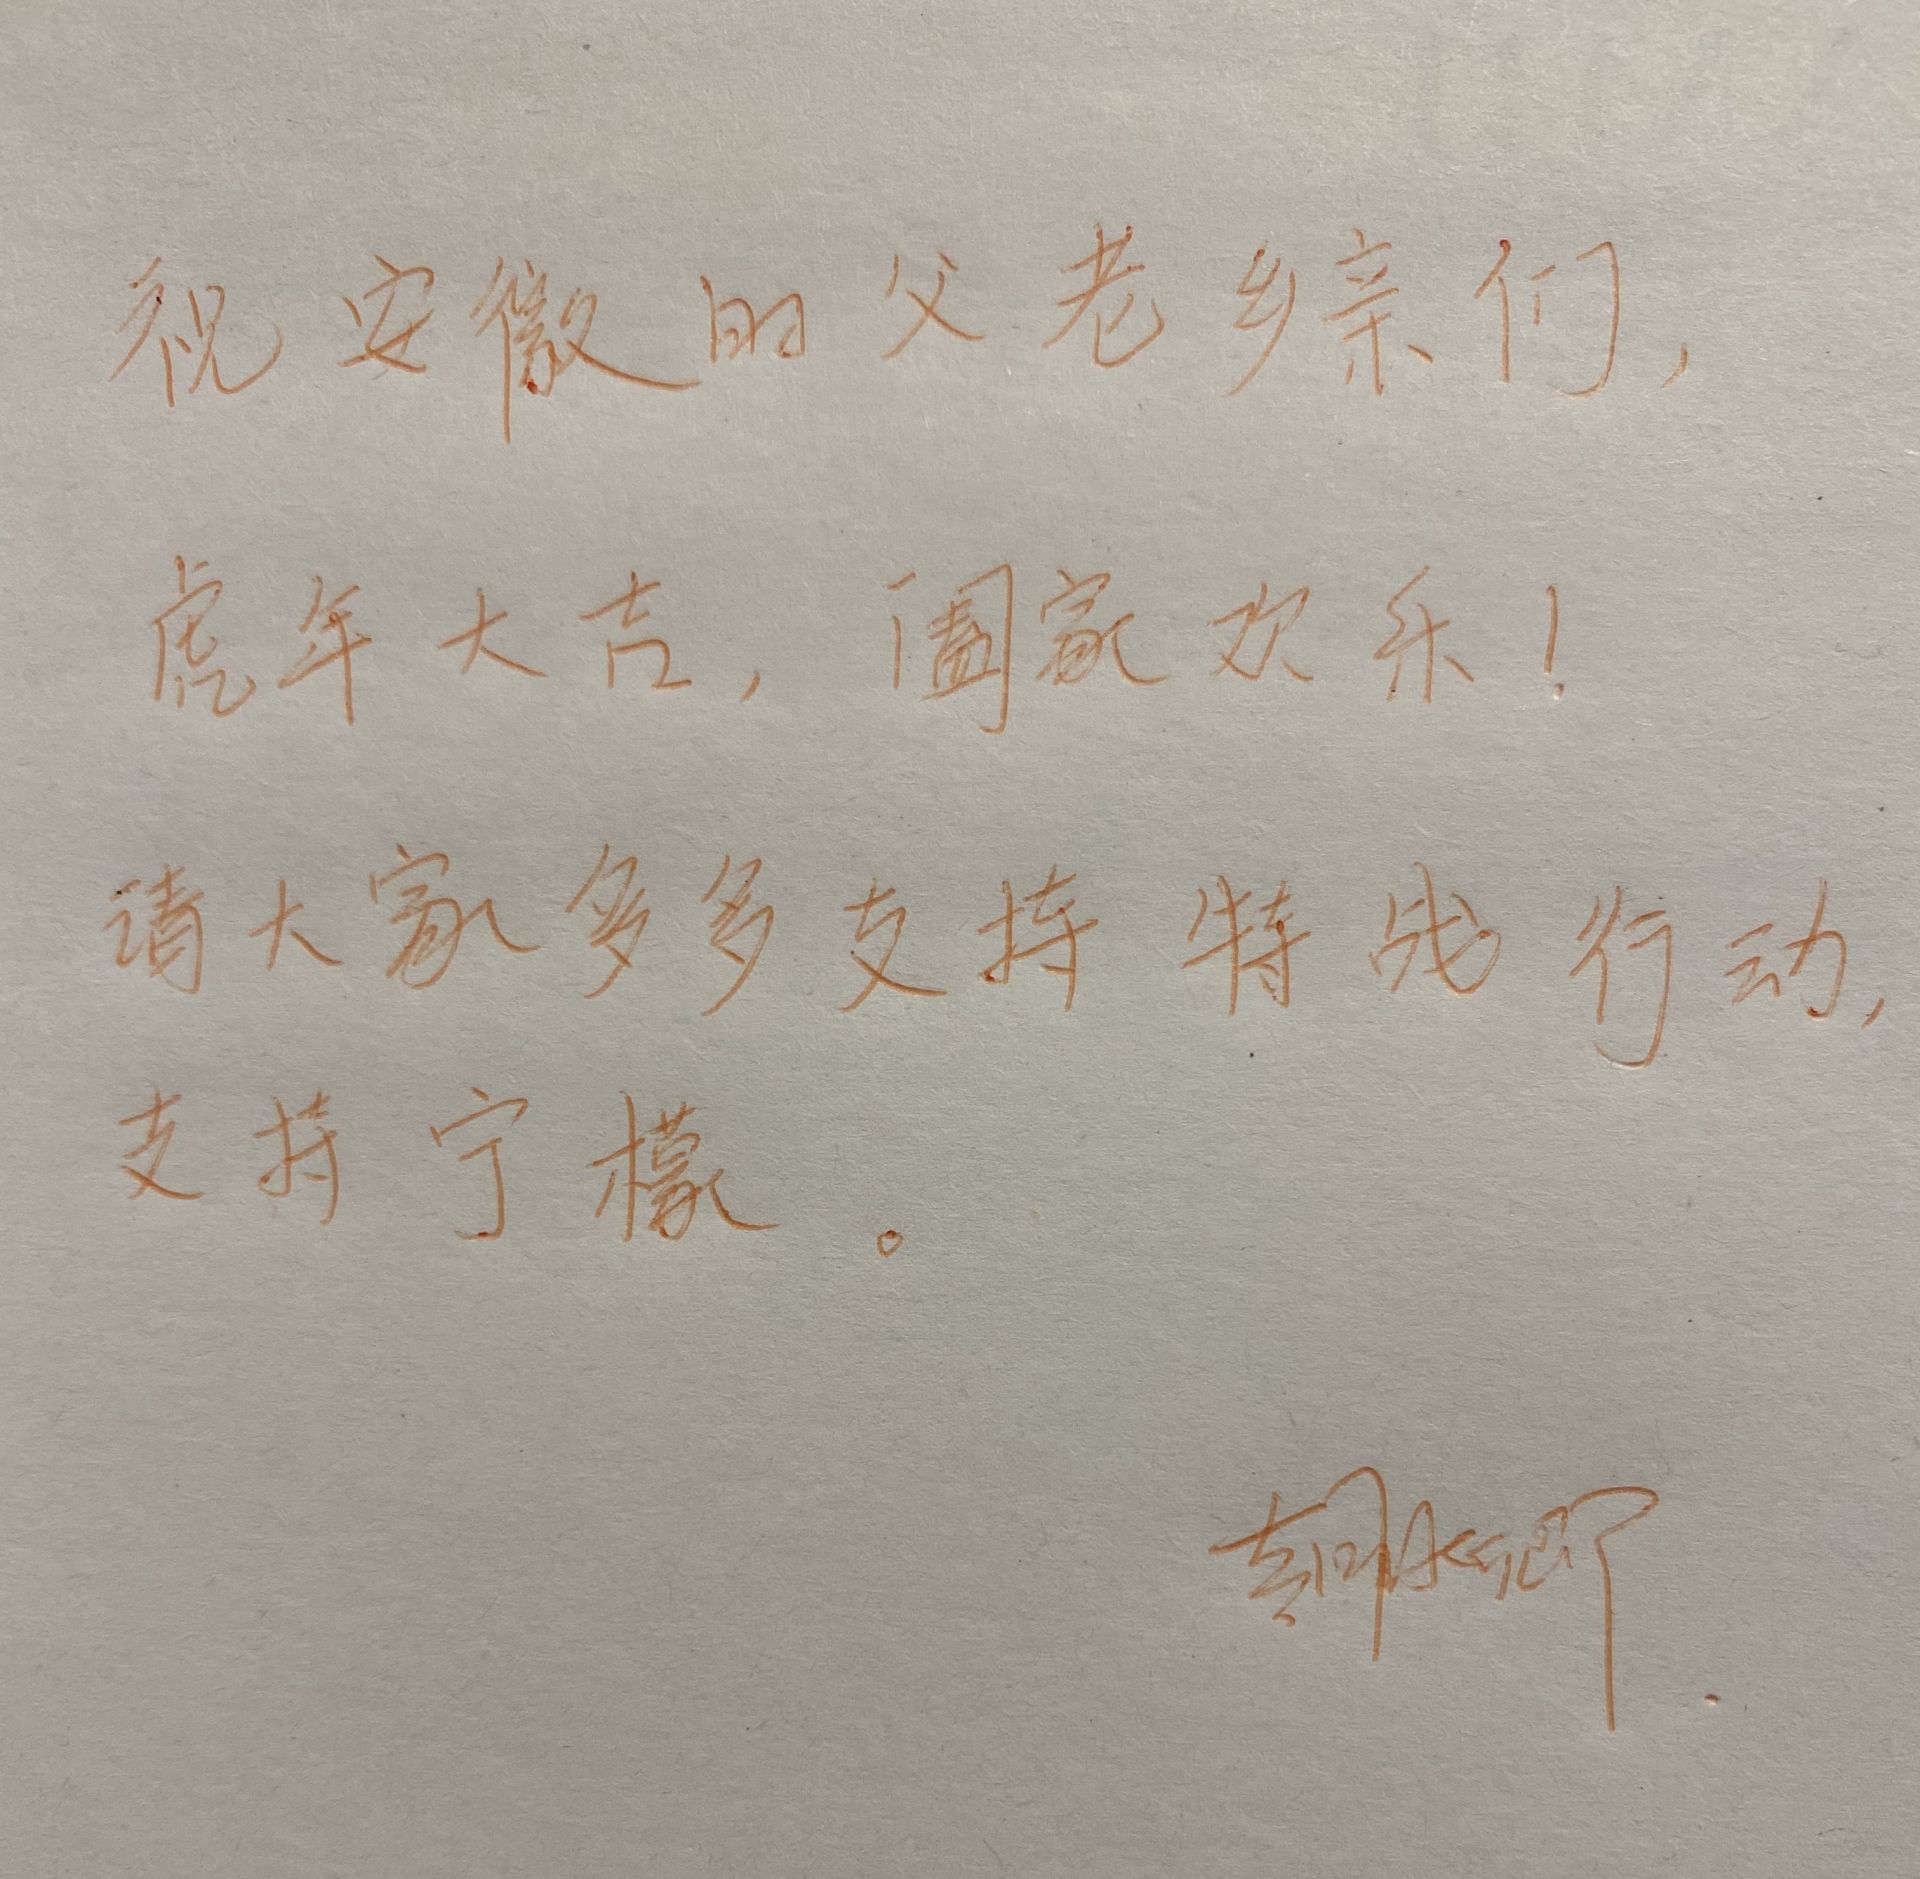 祝安徽的父老乡亲们，
虎年大吉，阖家欢乐！
请大家多多支持特战行动，
支持宁檬。